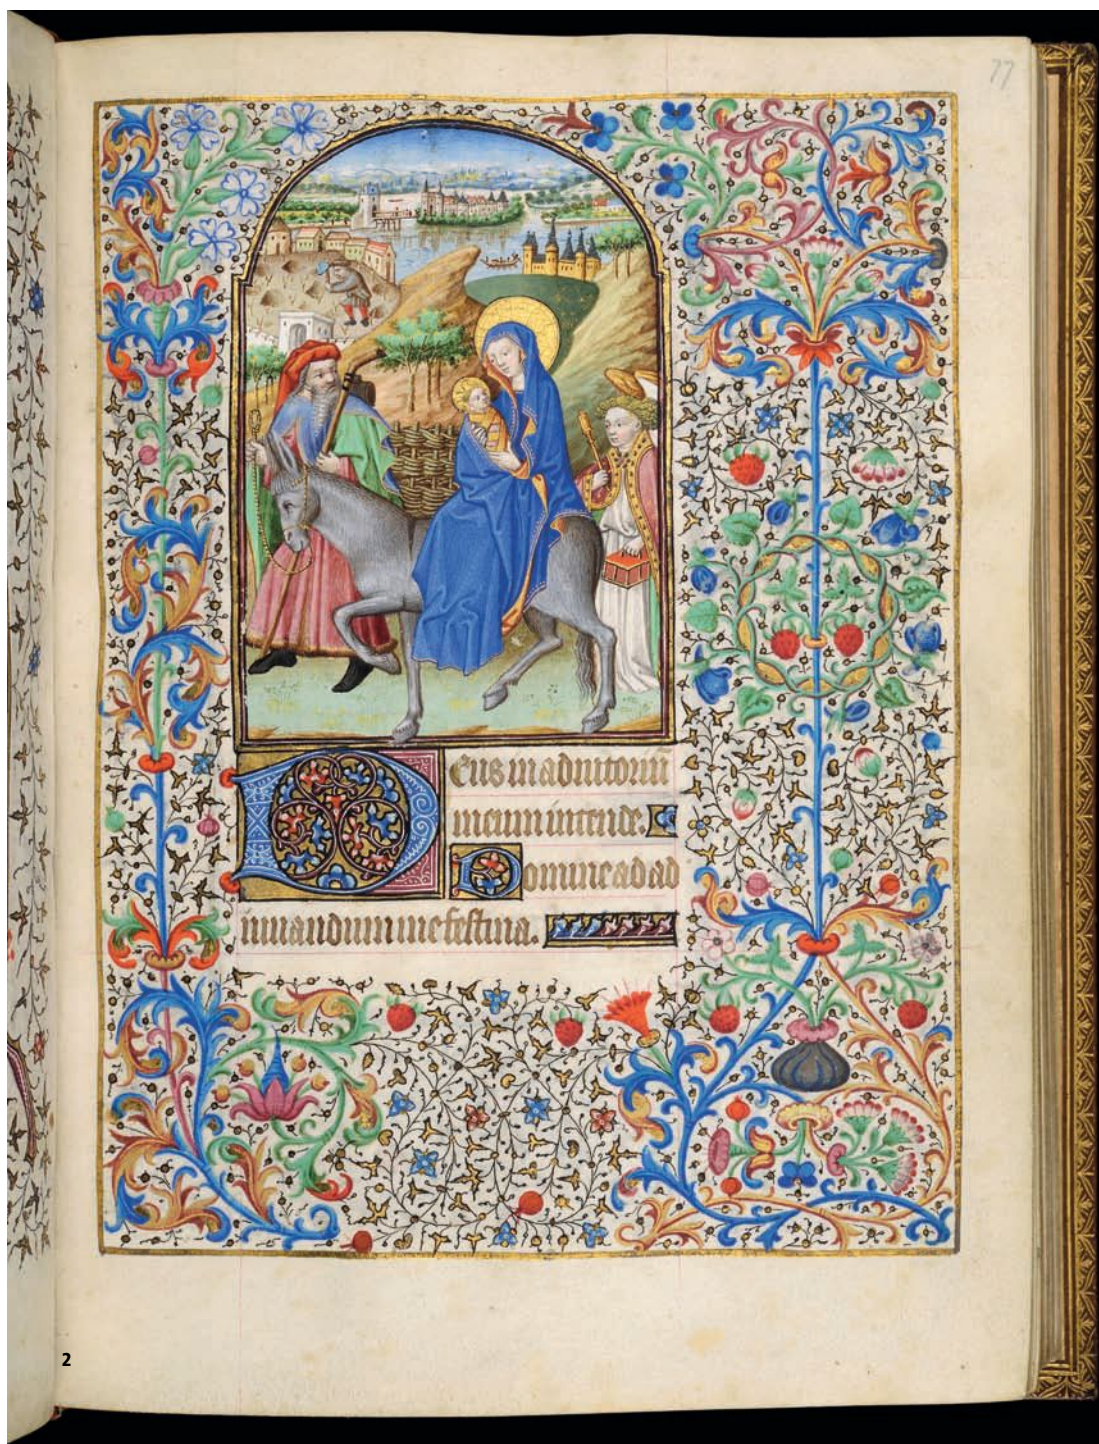 77
Deus in adiutoriū
meum intende.
Domine ad ad
iuuandum me festina.
2